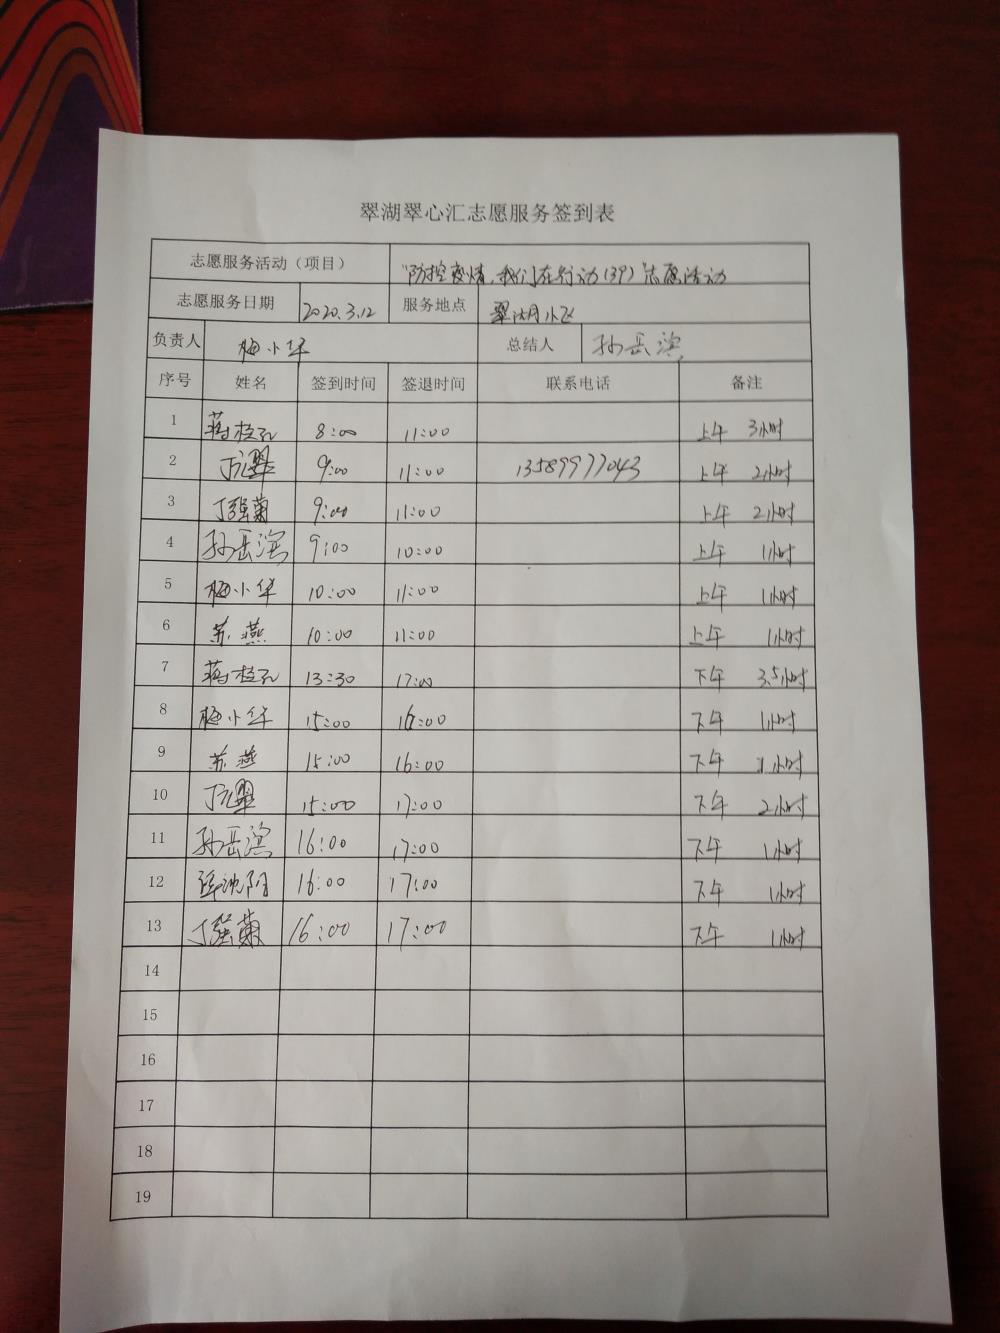 翠湖翠心汇志愿服务签到表
志愿服务活动（项目） "防控疫情，我们在行动（39）"志愿活动
志愿服务日期 2020.3.12 服务地点 翠湖小区
负责人 梅小华 总结人 孙岳滨
序号 姓名 签到时间 签退时间 联系电话 备注
1 蒋桂孔 8:00 11:00 上午 3小时
2 丁元翠 9:00 11:00 13589977043 上午 2小时
3 丁强菊 9:00 11:00 上午 2小时
4 孙岳滨 9:00 10:00 上午 1小时
5 梅小华 10:00 11:00 上午 1小时
6 苏燕 10:00 11:00 上午 1小时
7 蒋桂孔 13:30 17:00 下午 3.5小时
8 梅小华 15:00 16:00 下午 1小时
9 苏燕 15:00 16:00 下午 1小时
10 丁元翠 15:00 17:00 下午 2小时
11 孙岳滨 16:00 17:00 下午 1小时
12 16:00 17:00 下午 1小时
13 丁强菊 16:00 17:00 下午 1小时
14
15
16
17
18
19